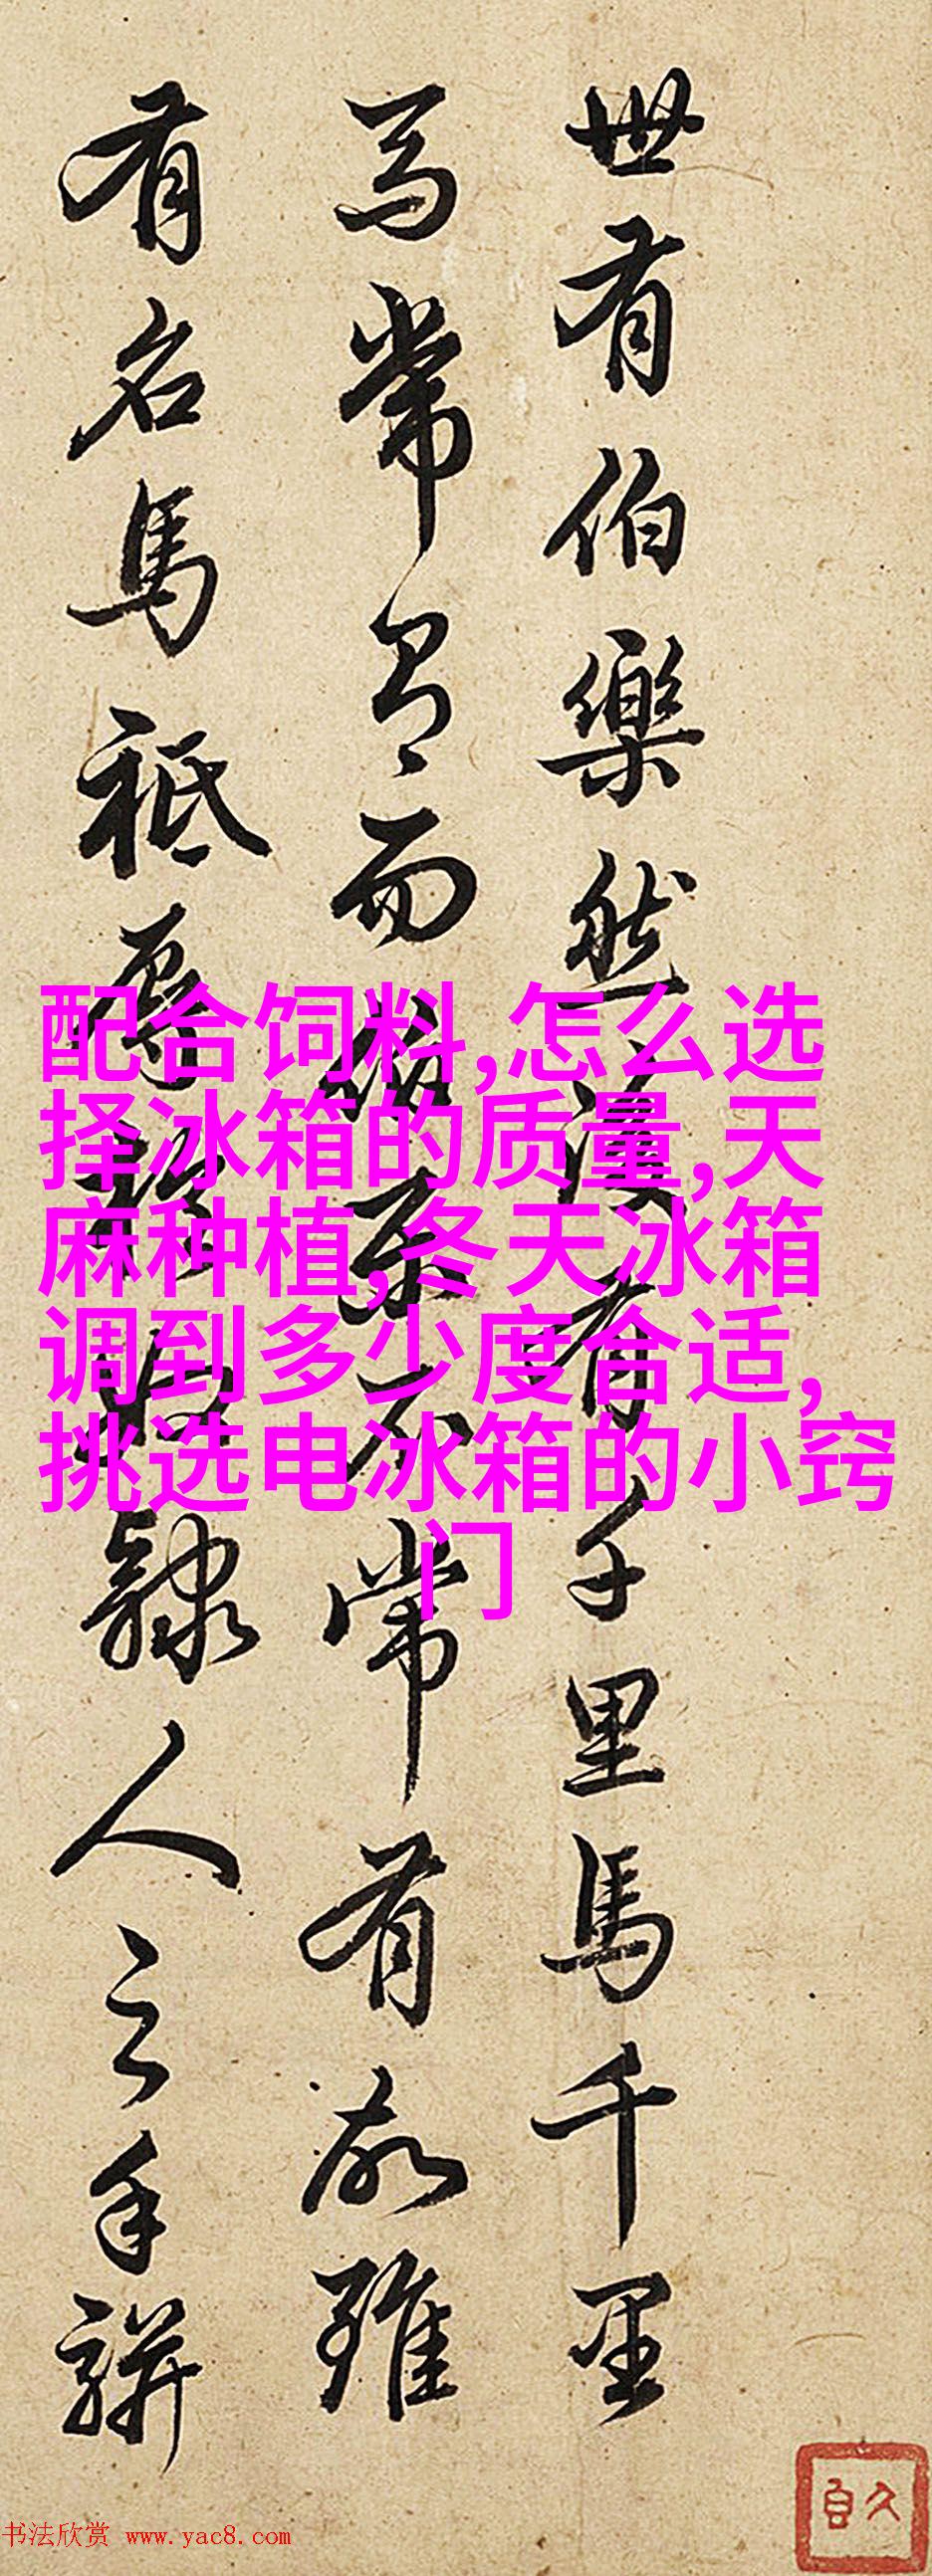 世有伯樂然後有千里馬千里
馬常有而伯樂不常有故雖
有名馬祗辱於奴隸人之手駢
配合饲料,怎么选
择冰箱的质量,天
麻种植,冬天冰箱
调到多少度合适,
挑选电冰箱的小窍
门
书法欣赏 www.yac8.com